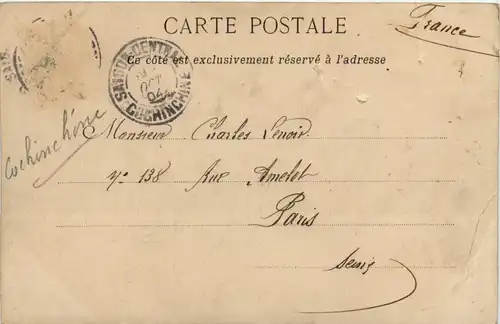 CARTE POSTALE
France
Ce côté est exclusivement réservé à l'adresse
SAIGON-CENTRAL
OCT
04
COCHINCHINE
Cochinchine
Monsieur Charles Lenoir
No 138 Rue Amelot
Paris